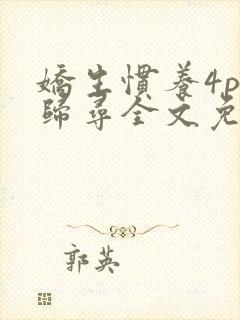 嬌生慣養4p
歸尋全文免
郭英